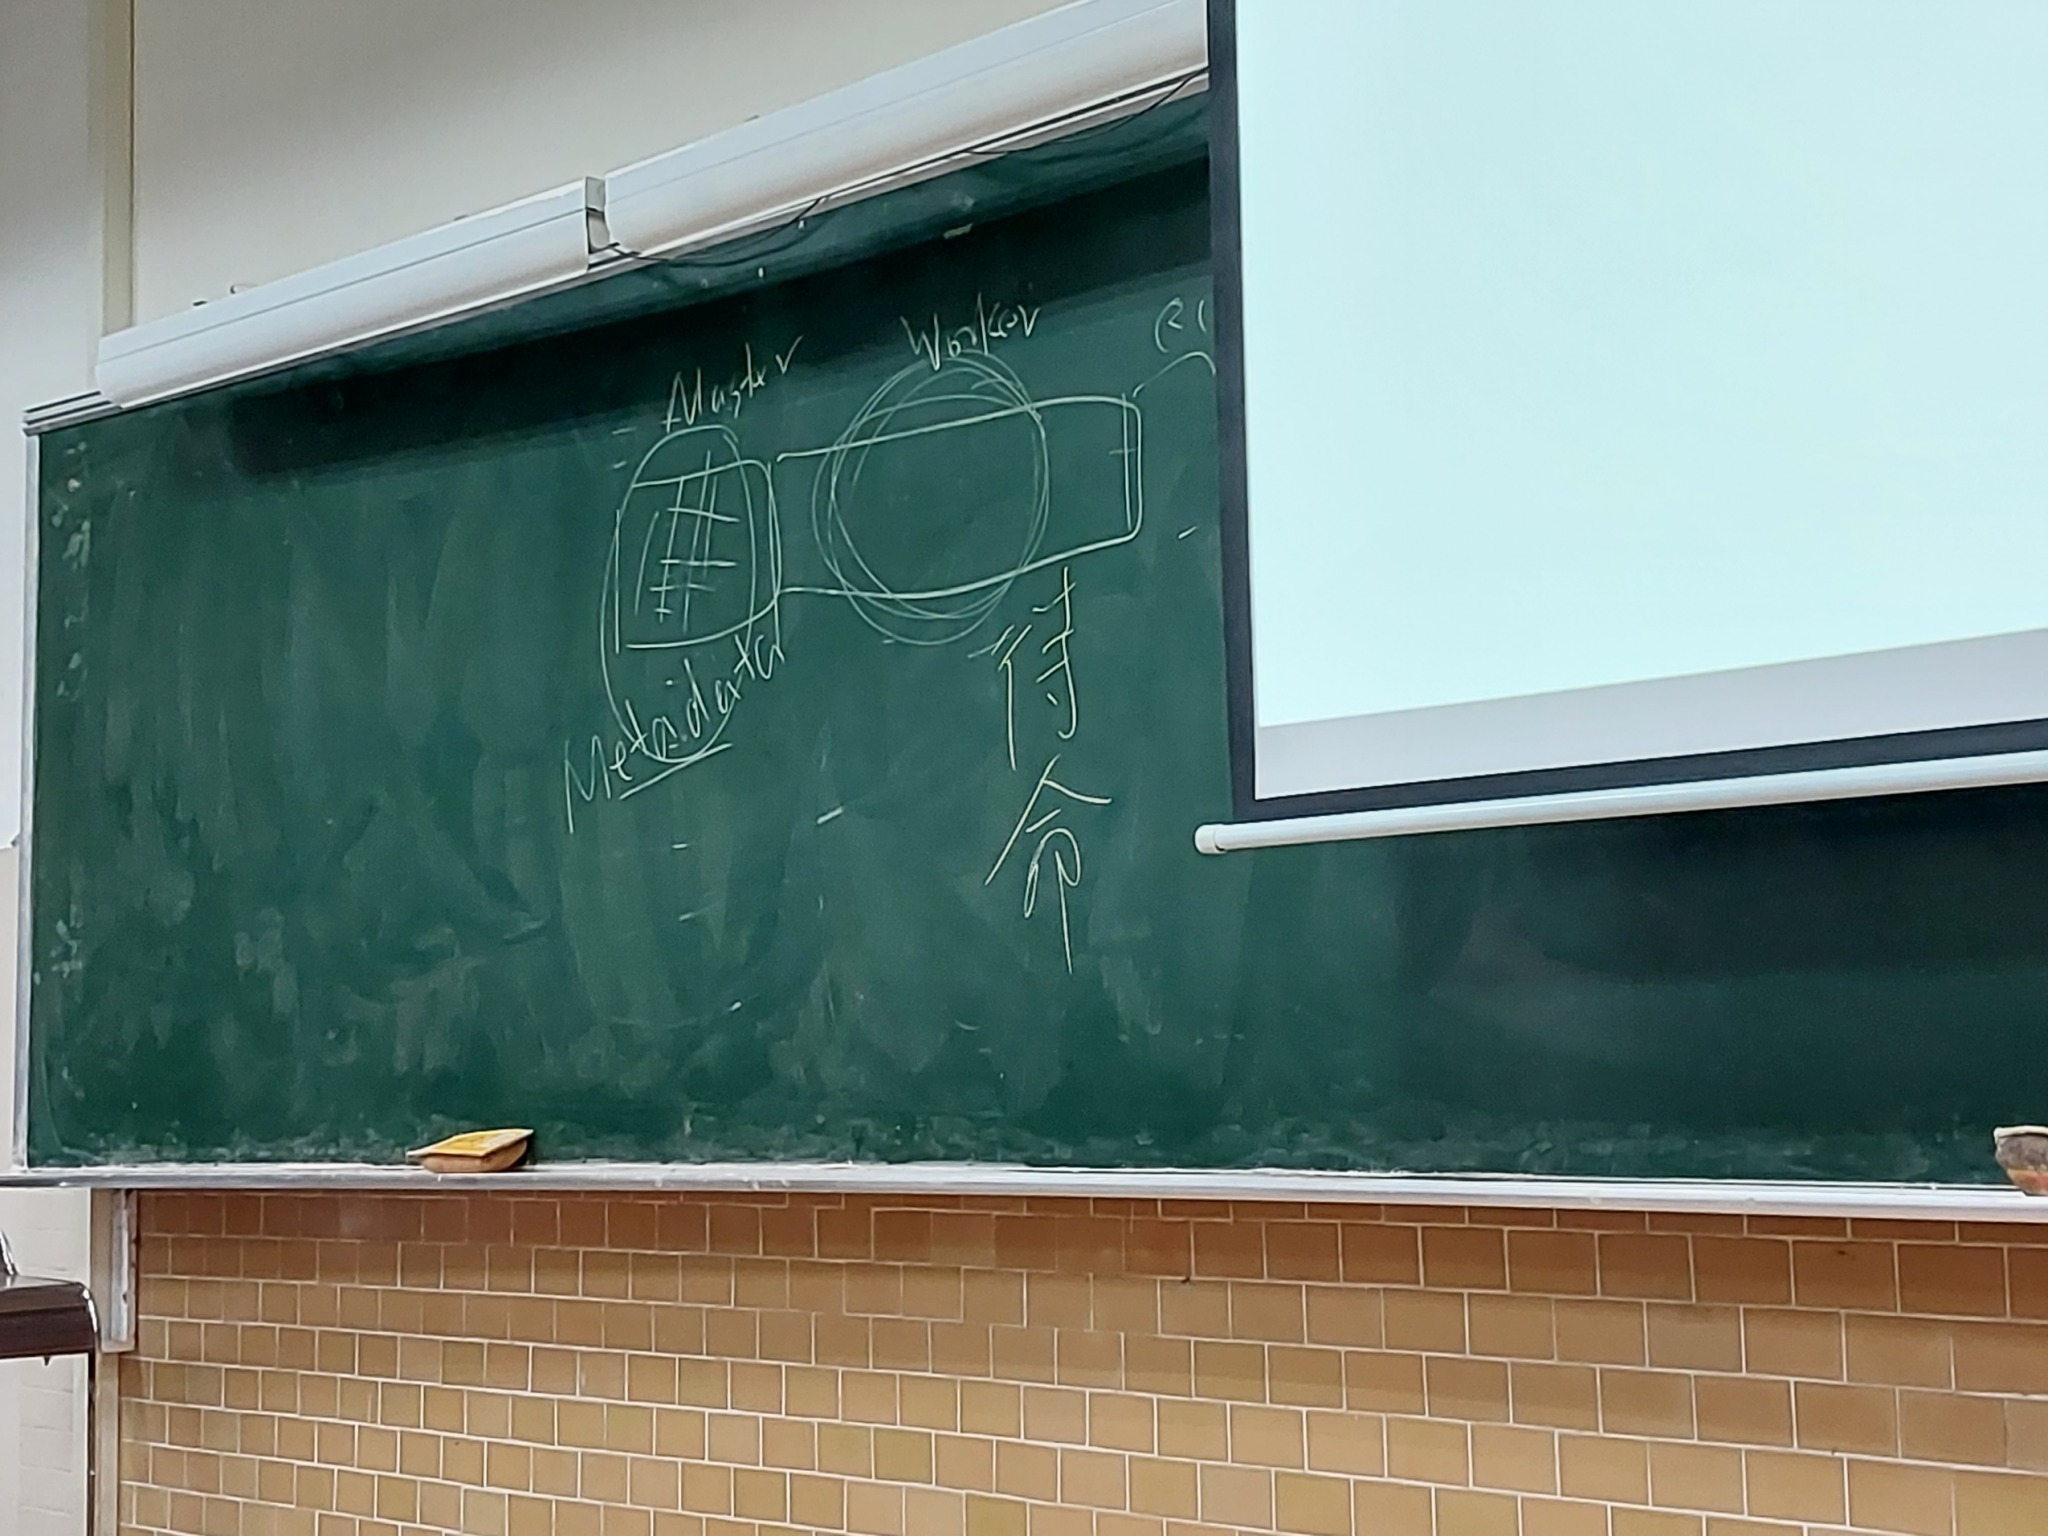 Master
Worker
Metadata
待命